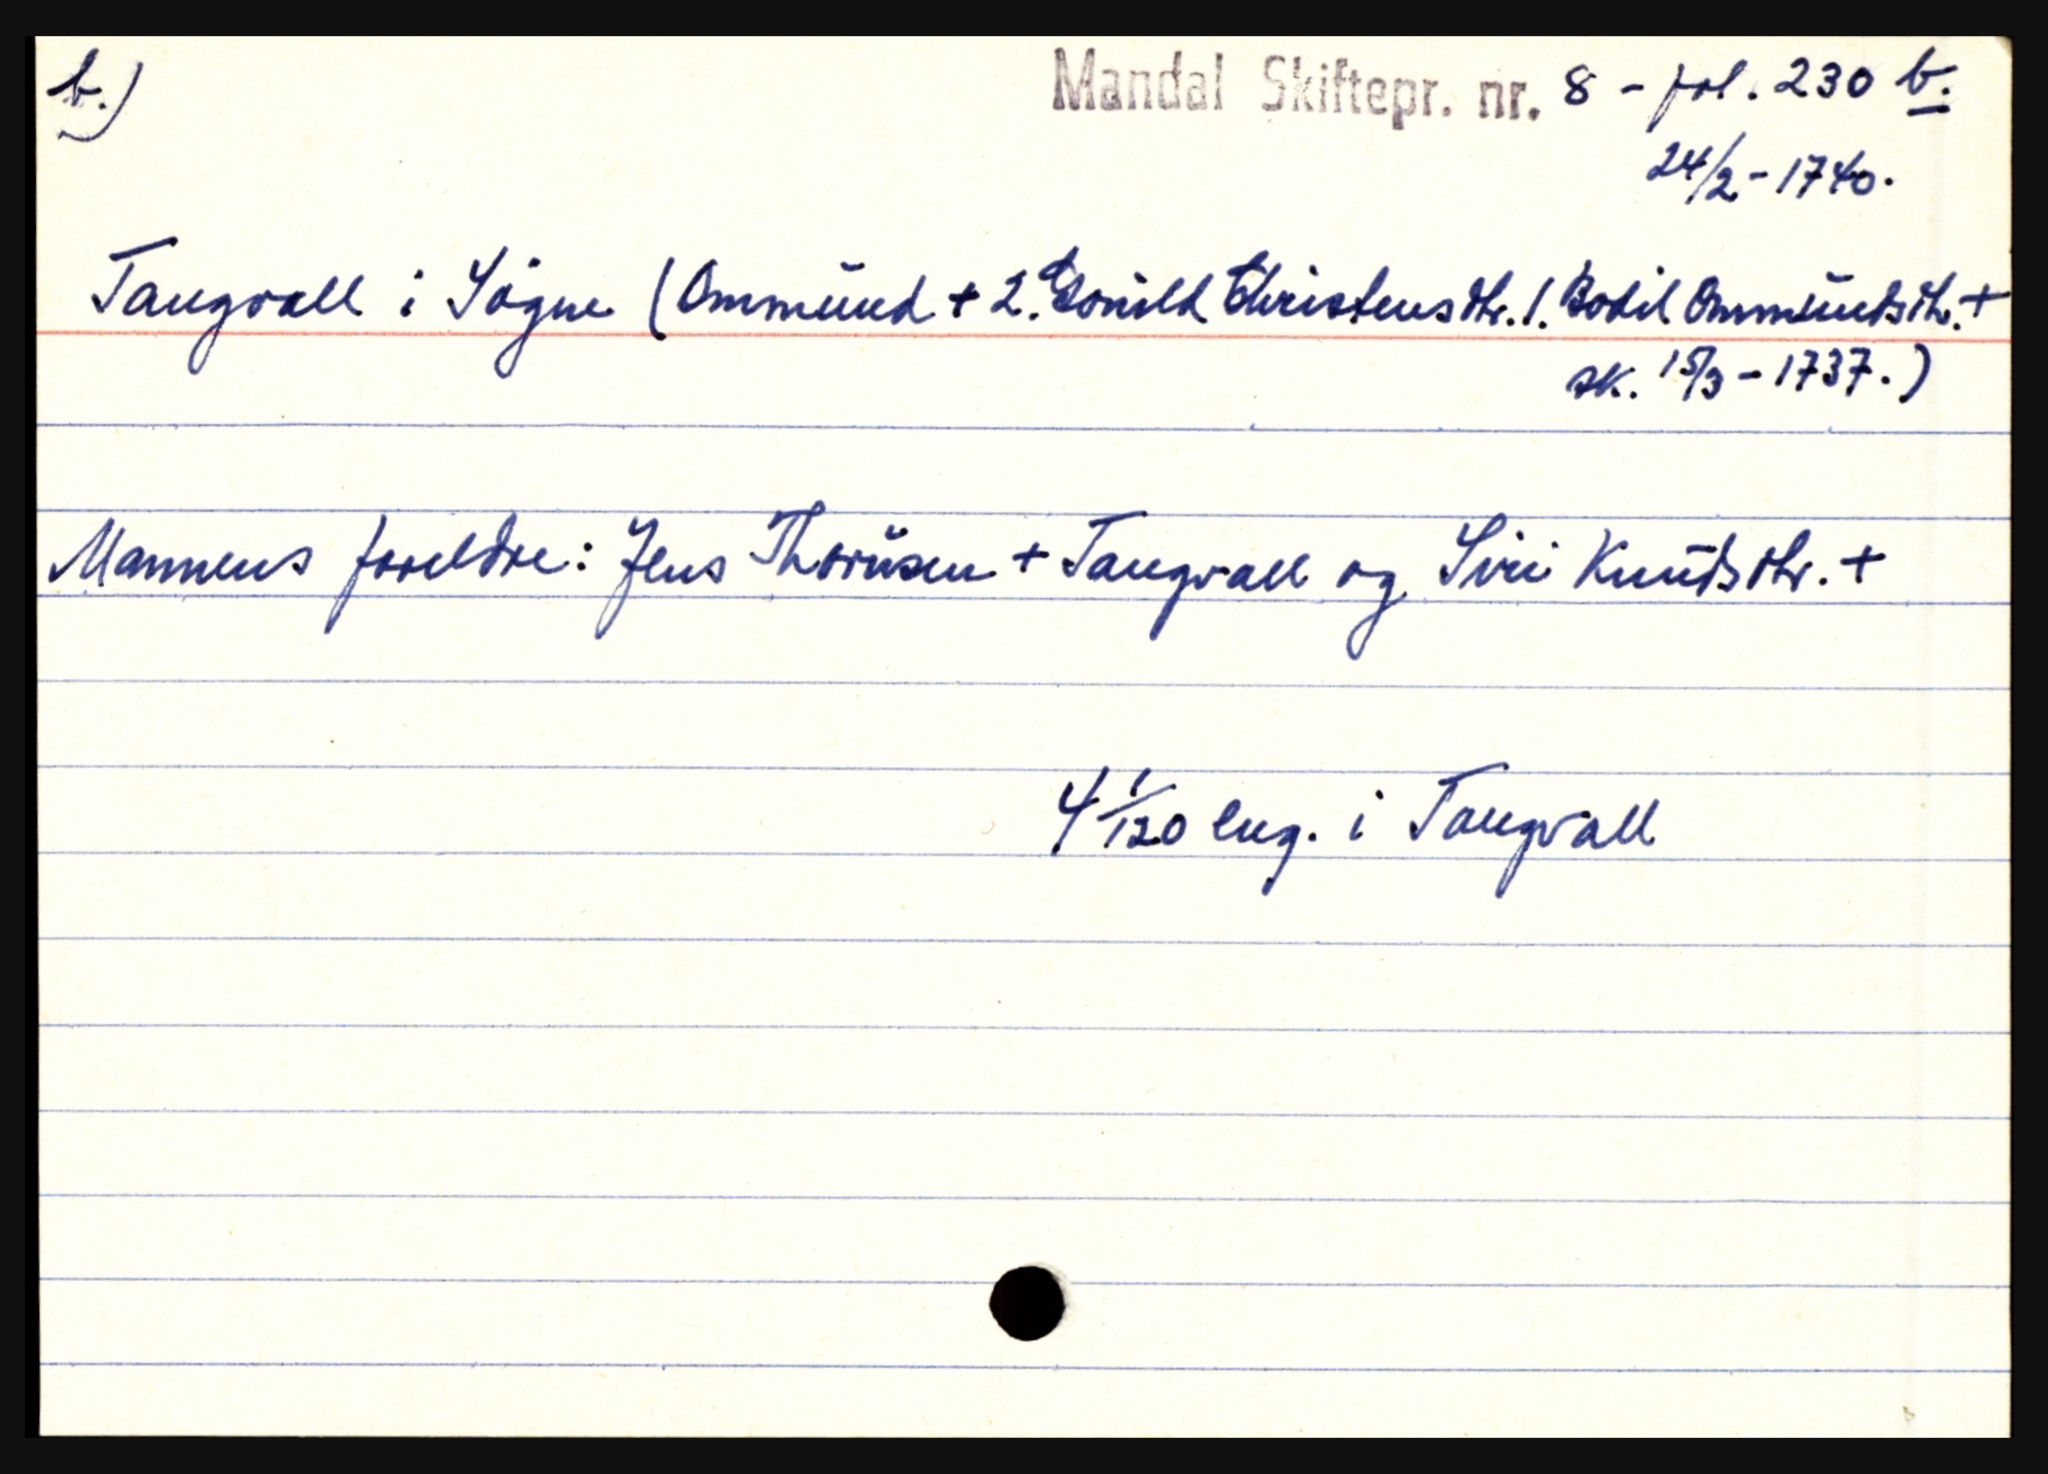 b.)
Mandal Skiftepr. nr. 8 - fol. 230 b.
24/2 - 1740.
Tangvall i Søgne (Ommund + 2. Gonild Christensdtr. 1. Bodil Ommundsdtr. +
sk. 15/3 - 1737.)
Mannens foreldre: Jens Thorüsen + Tangvall og Siri Knudsdtr. +
4 1/120 eng. i Tangvall